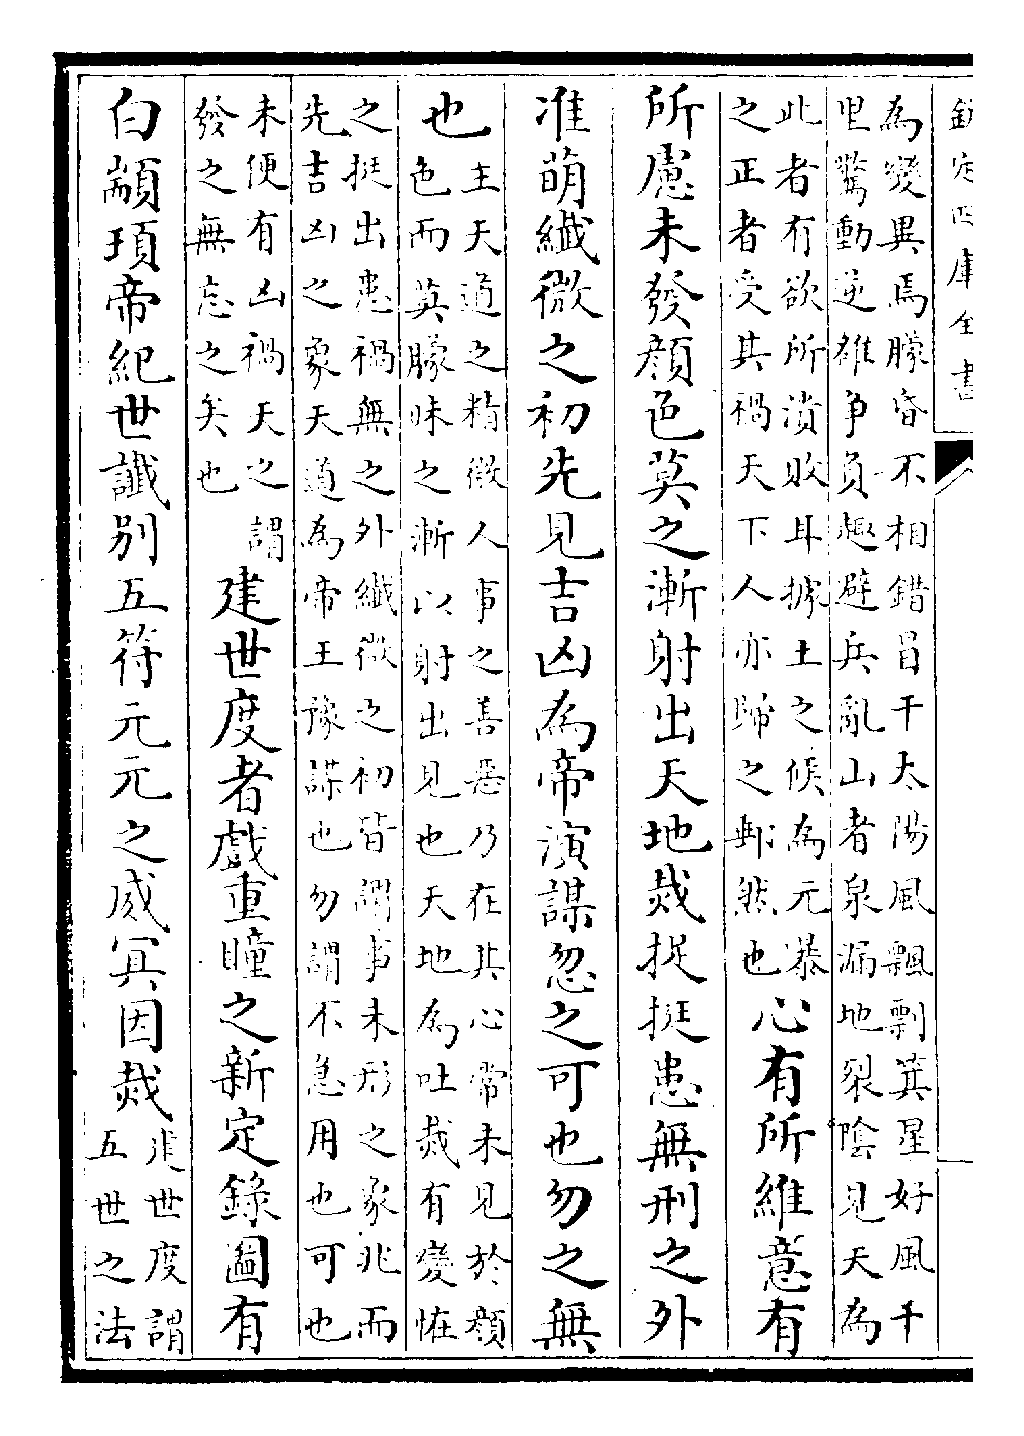 欽定四庫全書
為變異焉朦昏不相錯冒干太陽風飄剽箕星好風千
里驚動逆雜爭負趣避兵亂山者泉漏地裂陰見天為
此者有欲所潰敗耳據土之候為元恭
之正者受其禍天下人亦歸之郵然也
心有所維意有
所慮未發顏色莫之漸射出天地烖捉挺患無刑之外
准萌纖微之初先見吉凶為帝演謀忽之可也勿之無
也
主天道之精微人事之善惡乃在其心常未見於顏
色而莫朦昧之漸以射出見也天地為吐烖有變恠
之挺出患禍無之外纖微之初皆謂事未形之象兆而
先吉凶之象天道為帝王豫謀也勿謂不急用也可也
未便有凶禍天之謂
發之無忘之矣也
建世度者戲重瞳之新定錄圖有
白顓頊帝紀世讖別五符元元之威冥因烖
准世度謂
五世之法